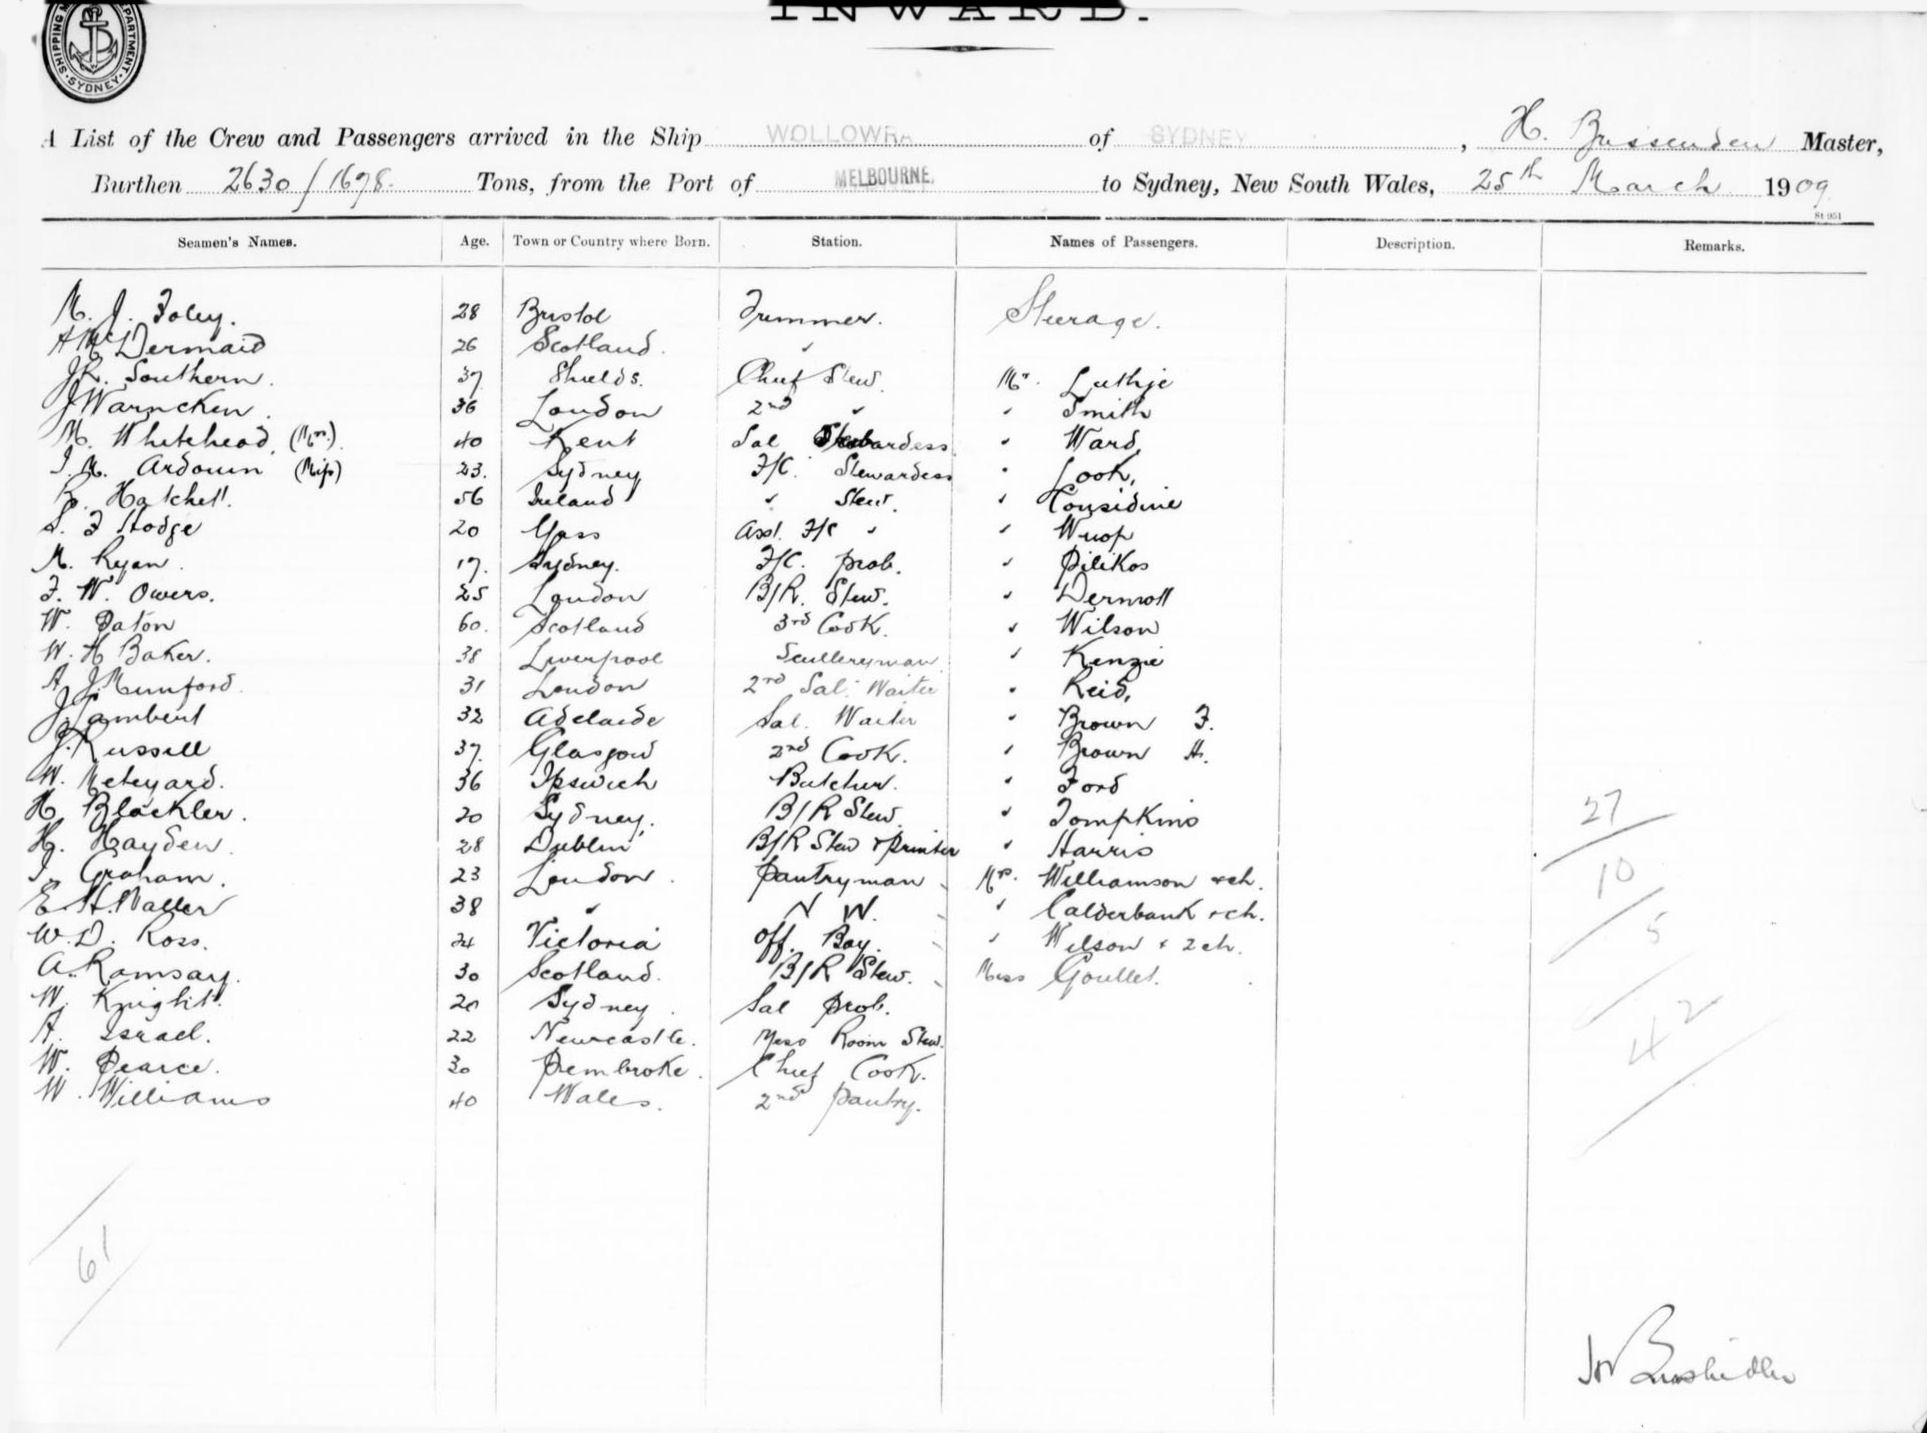 INWARD.
SHIPPING M DEPARTMENT. SYDNEY
A List of the Crew and Passengers arrived in the Ship WOLLOWRA of SYDNEY, H. Brissenden Master,
Burthen 2630/1698. Tons, from the Port of MELBOURNE. to Sydney, New South Wales, 25th March 1909
St 951
Seamen's Names. Age. Town or Country where Born. Station. Names of Passengers. Description. Remarks.
M. J. Foley. 28 Bristol Trimmer. Steerage.
A McDermaid 26 Scotland. "
J R. Southern. 37 Shields. Chief Stew. Mr. Luthje
J Warncken. 36 London 2nd " " Smith
M. Whitehead, (Mrs.) 40 Kent Sal Stewardess " Ward,
I. M. Ardouin (Miss) 23. Sydney F/C. Stewardess " Look,
Hatchett. 56 Ireland " Stew. " Considine
S. F Hodge 20 Yass Asst. F/C " "
M. Ryan. 17. Sydney. F/C. Prob. " Pilikos
F. W. Owers. 25 London B/R. Stew. " Dermott
W. Paton 60. Scotland 3rd Cook. " Wilson
W. H Baker. 38 Liverpool Sculleryman " Kenzie
A J Mumford. 31 London 2nd Sal. Waiter " Reid,
J. Lambert 32 Adelaide Sal. Waiter " Brown F.
J. Russell 37. Glasgow 2nd Cook. " Brown H.
W. Meteyard. 36 Ipswich Butcher. " Ford
H. Blackler. 20 Sydney. B/R Stew. " Tompkins
H. Hayden. 28 Dublin B/R Stew & Printer " Harris
Graham. 23 London. Pantryman Mrs. Williamson & ch.
E. H. Waller 38 " N W. " Calderbank & ch.
W. D. Ross. 24 Victoria Off. Boy. " Wilson & 2 ch.
A. Ramsay. 30 Scotland. B/R Stew. Miss Goullet.
W. Knight. 20 Sydney. Sal Prob.
A. Israel. 22 Newcastle. Mess Room Stew.
W. Pearce. 30 Pembroke. Chief Cook.
W. Williams 40 Wales. 2nd Pantry.
27
10
5
42
61